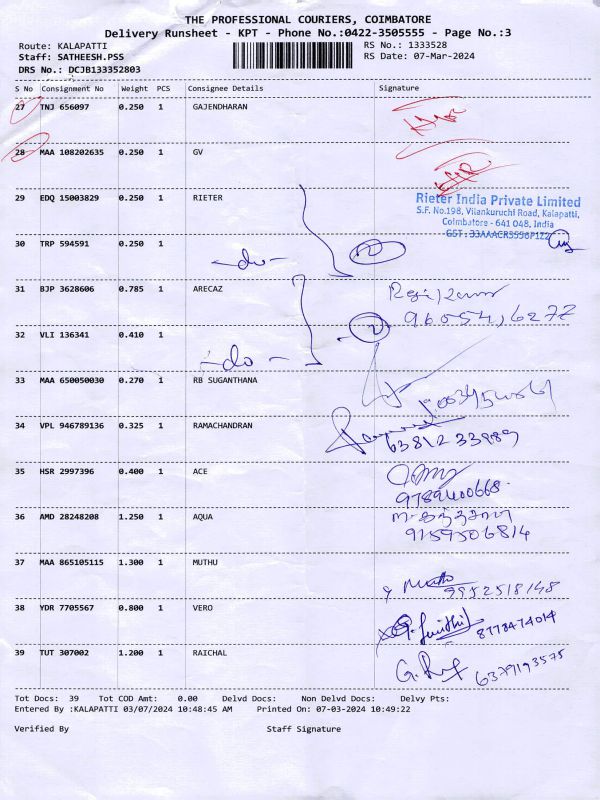 THE PROFESSIONAL COURIERS, COIMBATORE
Delivery Runsheet - KPT - Phone No.:0422-3505555 - Page No.:3
Route: KALAPATTI RS No.: 1333528
Staff: SATHEESH.PSS RS Date: 07-Mar-2024
DRS No.: DCJB133352803
S No Consignment No Weight PCS Consignee Details Signature
27 TNJ 656097 0.250 1 GAJENDHARAN
28 MAA 108202635 0.250 1 GV
29 EDQ 15003829 0.250 1 RIETER
Rieter India Private Limited
S.F. No.198, Vilankuruchi Road, Kalapatti,
Coimbatore - 641 048, India
30 TRP 594591 0.250 1
-do- 2
31 BJP 3628606 0.785 1 ARECAZ
32 VLI 136341 0.410 1
-do- 2
33 MAA 650050030 0.270 1 RB SUGANTHANA
34 VPL 946789136 0.325 1 RAMACHANDRAN
63812 33989
35 HSR 2997396 0.400 1 ACE
9789400668
36 AMD 28248208 1.250 1 AQUA
9159506814
37 MAA 865105115 1.300 1 MUTHU
9952518148
38 YDR 7705567 0.800 1 VERO
8778474014
39 TUT 307002 1.200 1 RAICHAL
6379193575
Tot Docs: 39 Tot COD Amt: 0.00 Delvd Docs: Non Delvd Docs: Delvy Pts:
Entered By :KALAPATTI 03/07/2024 10:48:45 AM Printed On: 07-03-2024 10:49:22
Verified By Staff Signature